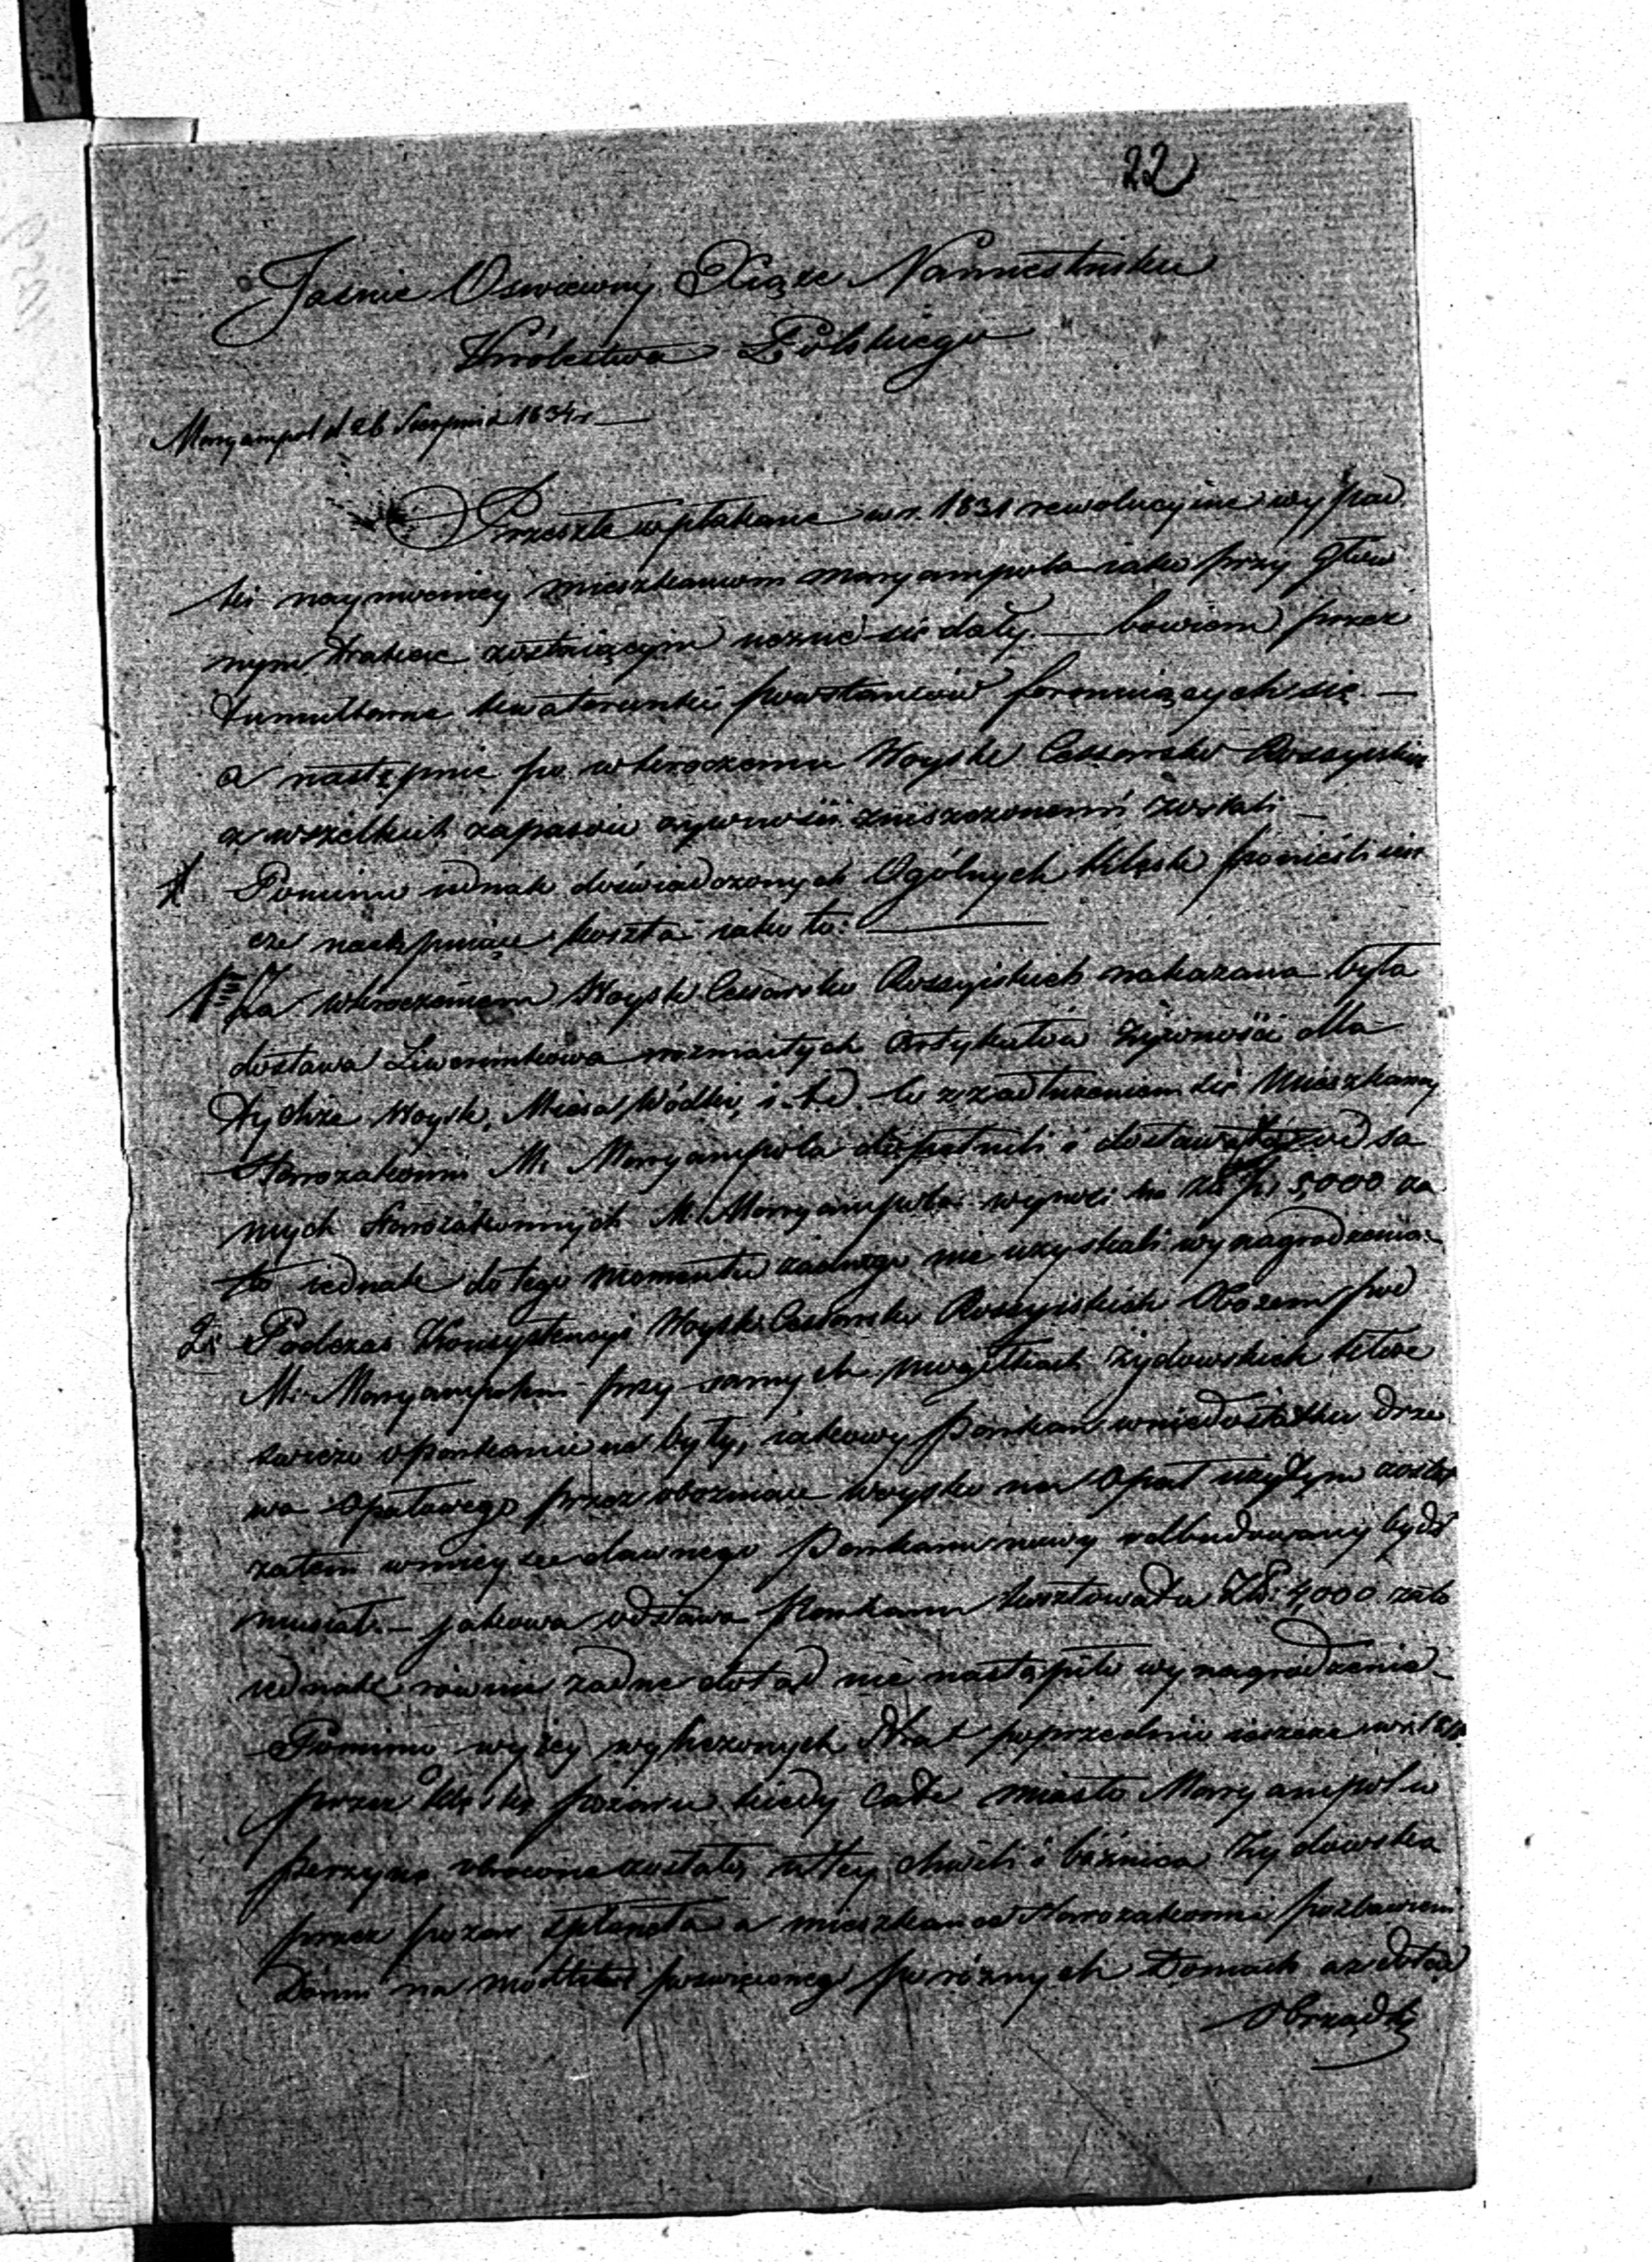 22
Jaśnie Oświecony Xiąże Namiestniku
Królestwa Polskiego
Maryampol d 26 Sierpnia 1834 r
Przeszłe opłakane w r. 1831 rewolucyine wypad
ki naymocniey mieszkancom Maryampola iako przy głów
nym Trakcie zostaiącym uczuć się dały — bowiem przez
tumultarne kwaterunki powstańców formuiących się —
a następnie po wkroczeniu Woysk Cesarsko Rossyiskich
z wszelkich zapasów żywności zniszczonemi zostali —
Pomimo iednak doświadczonych Ogólnych klęsk ponieśli iesz
cze następuiące koszta iako to:
1 Za wkroczeniem Woysk Cesarsko Rossyiskich nakazana była
dostawa Liwerunkowa rozmaitych Artykułów żywności dla
tychże Woysk, Mięsa, Wódki, i t.d. co z zadłużeniem się Mieszkańcy
Starozakonni M. Maryampola dopełnili i dostawa od sa
mych Starozakonnych M. Maryampola wynosi 5,000 za
to iednak do tego momentu żadnego nie uzyskali wynagrodzenia —
2. Podczas Konsystencyi Woysk Cesarsko Rossyiskich Obozem pod
M. Maryampolem przy samych mogiłkach żydowskich które
świeżo oparkanione były, iakowy Parkan w niedostatku drze
wa opałowego przez obozuiące woysko na Opał użytym został
zatem w mieysce dawnego Parkanu nowy odbudowany bydź
musiał — jakowa odstawa Parkanu kosztowała Zł. 4,000 za to
iednak równie żadne dotąd nie nastąpiło wynagrodzenie —
Pomimo wyżey wyliczonych Strat poprzednio ieszcze w r.
przez klęskę pożaru kiedy całe miasto Maryampol w
perzynę obrócone zostało, w tey chwili i bóżnica Żydowska
przez pożar spłonęła a mieszkańce Starozakonni pozbawieni
Domu na modlitwę poświęconego po różnych Domach aż dotąd
Obrządki